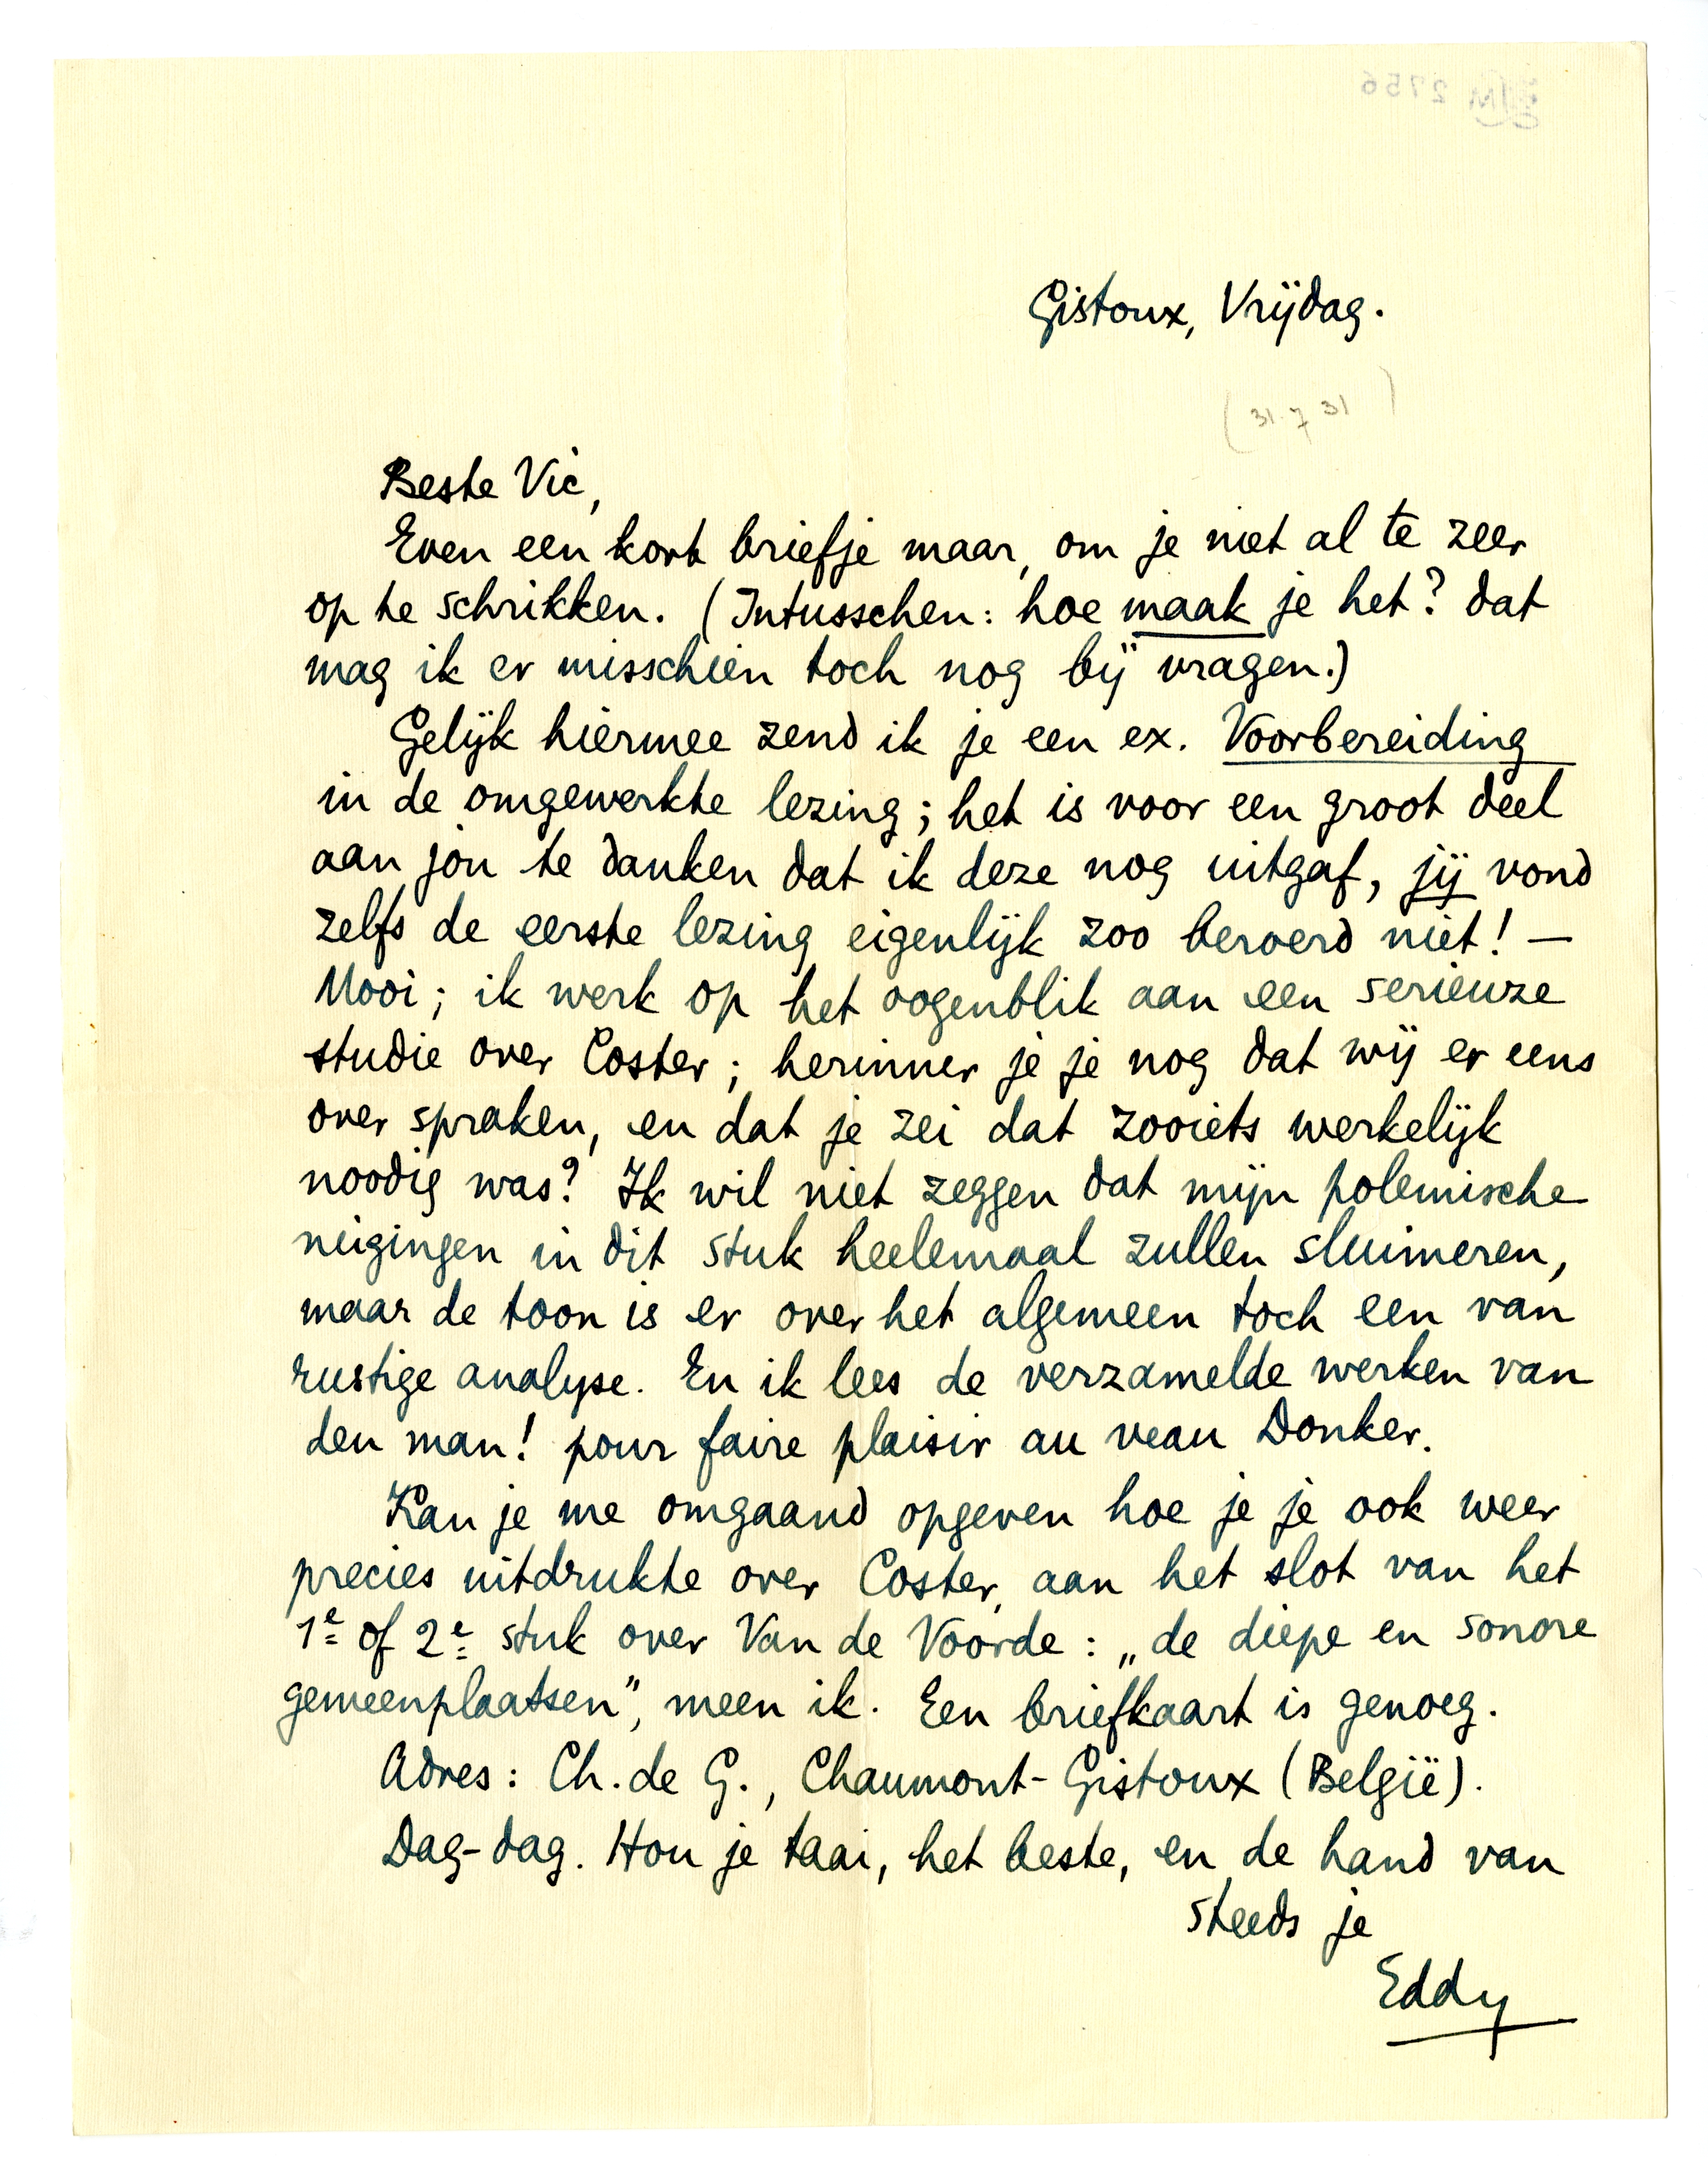 Gistoux, Vrijdag.
(31.7 31)
Beste Vic,
Even een kort briefje maar, om je niet al te zeer
op te schrikken. (Intusschen: hoe maak je het? dat
mag ik er misschien toch nog bij vragen.)
Gelijk hiermee zend ik je een ex. Voorbereiding
in de omgewerkte lezing; het is voor een groot deel
aan jou te danken dat ik deze nog uitgaf, jij vond
zelfs de eerste lezing eigenlijk zoo beroerd niet! —
Mooi; ik werk op het oogenblik aan een serieuze
studie over Coster; herinner je je nog dat wij er eens
over spraken, en dat je zei dat zooiets werkelijk
noodig was? Ik wil niet zeggen dat mijn polemische
neigingen in dit stuk heelemaal zullen sluimeren,
maar de toon is er over het algemeen toch een van
rustige analyse. En ik lees de verzamelde werken van
den man! pour faire plaisir au veau Donker.
Kan je me omgaand opgeven hoe je je ook weer
precies uitdrukte over Coster, aan het slot van het
1e of 2e stuk over Van de Voorde: „de diepe en sonore
gemeenplaatsen", meen ik. Een briefkaart is genoeg.
Adres: Ch. de G., Chaumont-Gistoux (België).
Dag-dag. Hou je taai, het beste, en de hand van
steeds je
Eddy